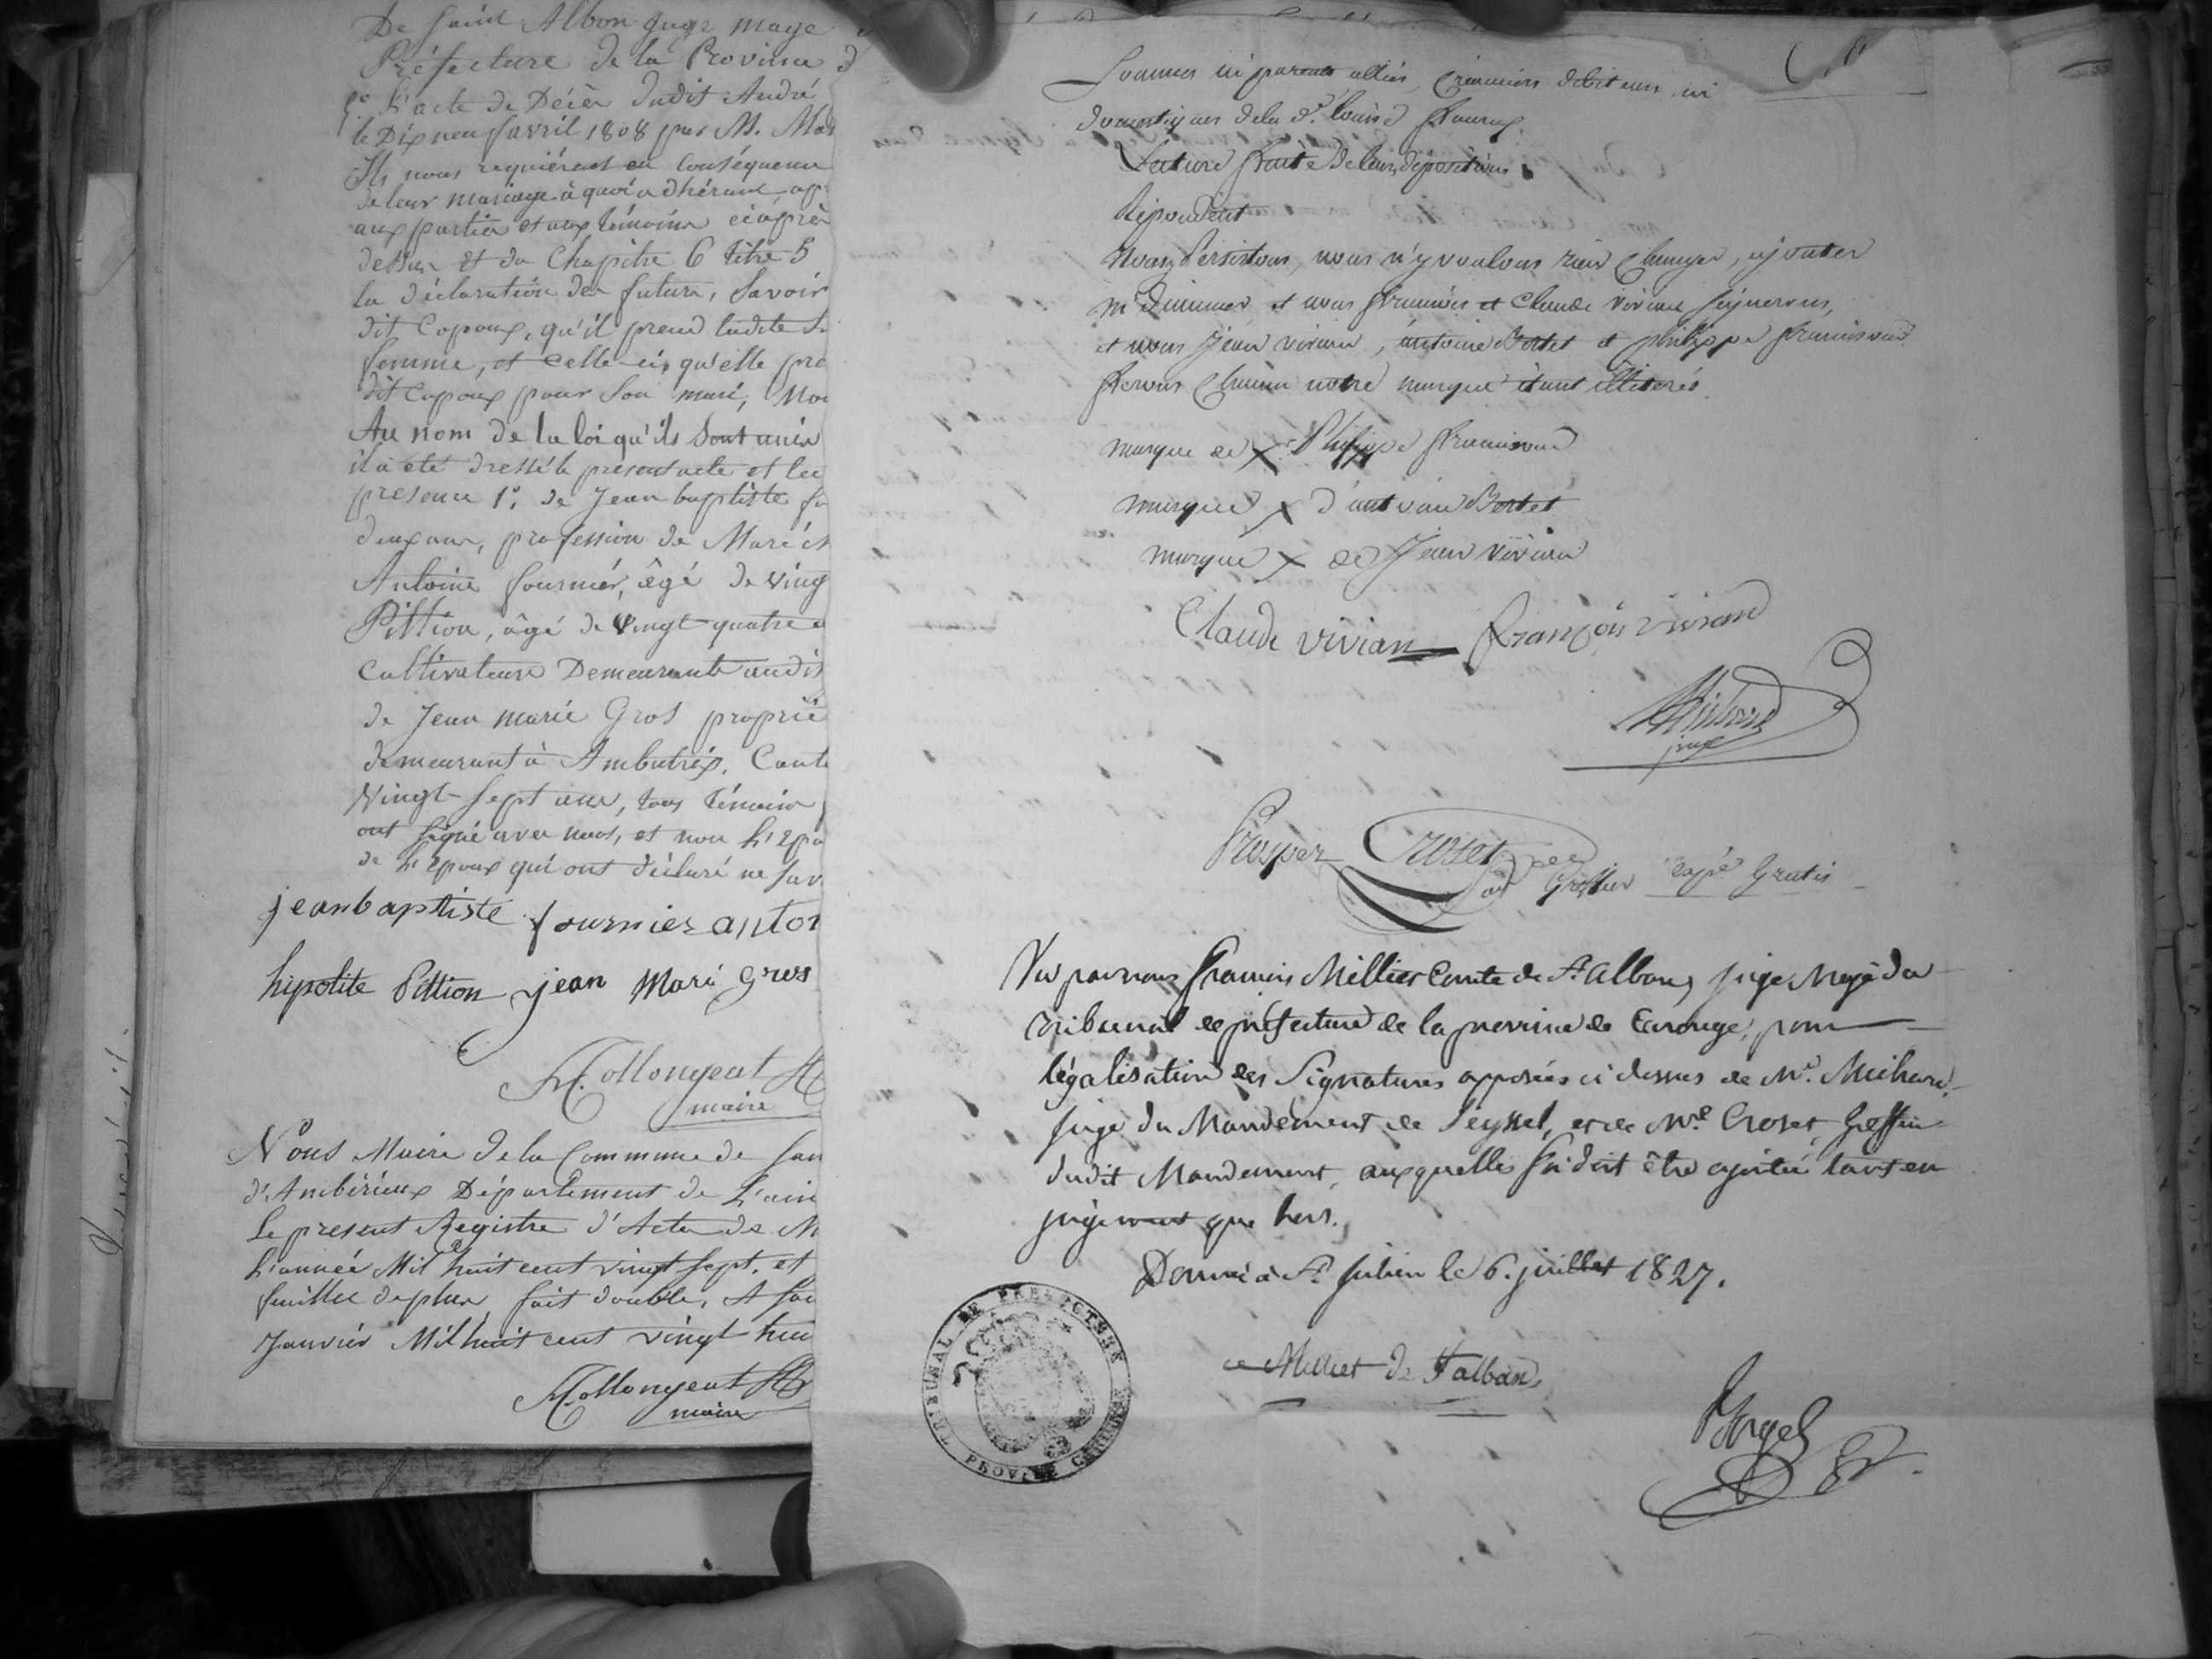 De Saint Albon juge maye
Préfecture de la Province d
5° L'acte de Décès dudit André
le Dix neuf avril 1808 par M. Mar
Ils nous requièrent en Conséquence
de leur mariage à quoi adhérant, ap
aux parties et aux témoins ciaprès
dessus et du Chapitre 6 titre 5
la déclaration des futurs, Savoir
dit Copoux, qu'il prend ladite
femme, et celle ci, qu'elle pre
dit Copoux pour Son mari, Nou
Au nom de la loi qu'ils Sont unis
il a été dressé le présent acte et les
présence 1°. de Jean baptiste fo
deux ans, profession de Maréch
Antoine fournier, âgé de ving
Pittion, âgé de Vingt-quatre a
Cultivateurs Demeurants audit
de Jean marie Gros proprié
demeurant à Ambutrix, Cant
Vingt-Sept ans, tous témoins
ont Signé avec nous, et non L'Epo
de L'Epoux qui ont déclaré ne Sav
jean baptiste fournier antoi
hipolite Pittion jean Marie gros
Collongeat
maire
Nous Maire de la Commune de San
d'Ambérieux Département de L'ain
Le présent Registre d'Acte de M
L'année Mil huit cent vingt Sept, et
feuillet deplus, fait double, A San
Janvier Mil huit cent vingt hui
Collongeat
maire
Sommes ni parents alliés, Créanciers débiteurs ni
domestiques de la d.e Louise
Lecture faite de leurs dépositions
Répondent
Nous Persistons, nous n'y voulons rien Changer, ajouter
ni diminuer et nous François et Claude vivian signerons,
et nous Jean vivian, antoine Bortet et philippe
ferons Chacun notre marque étant illiterés.
marque de x Philippe
marque x d'antoine Bortet
marque x de Jean vivian
Claude vivian François vivian
juge
Prosper Croset
Greffier expé Gratis
Vu par nous François Milliet Comte de St. Alban, juge Maje du
Tribunal de préfecture de la province de Carouge, pour
légalisation des Signatures apposées ci dessus de Mr. Michard,
juge du Mandement de Seyssel, et de Me. Croset, Greffier
dudit Mandement, auxquelles foi doit être ajoutée tant en
jugement que hors.
Donné à St. Julien le 6. juillet 1827.
Milliet de St alban
TRIBUNAL DE PRÉFECTURE
PROV. DE CAROUGE